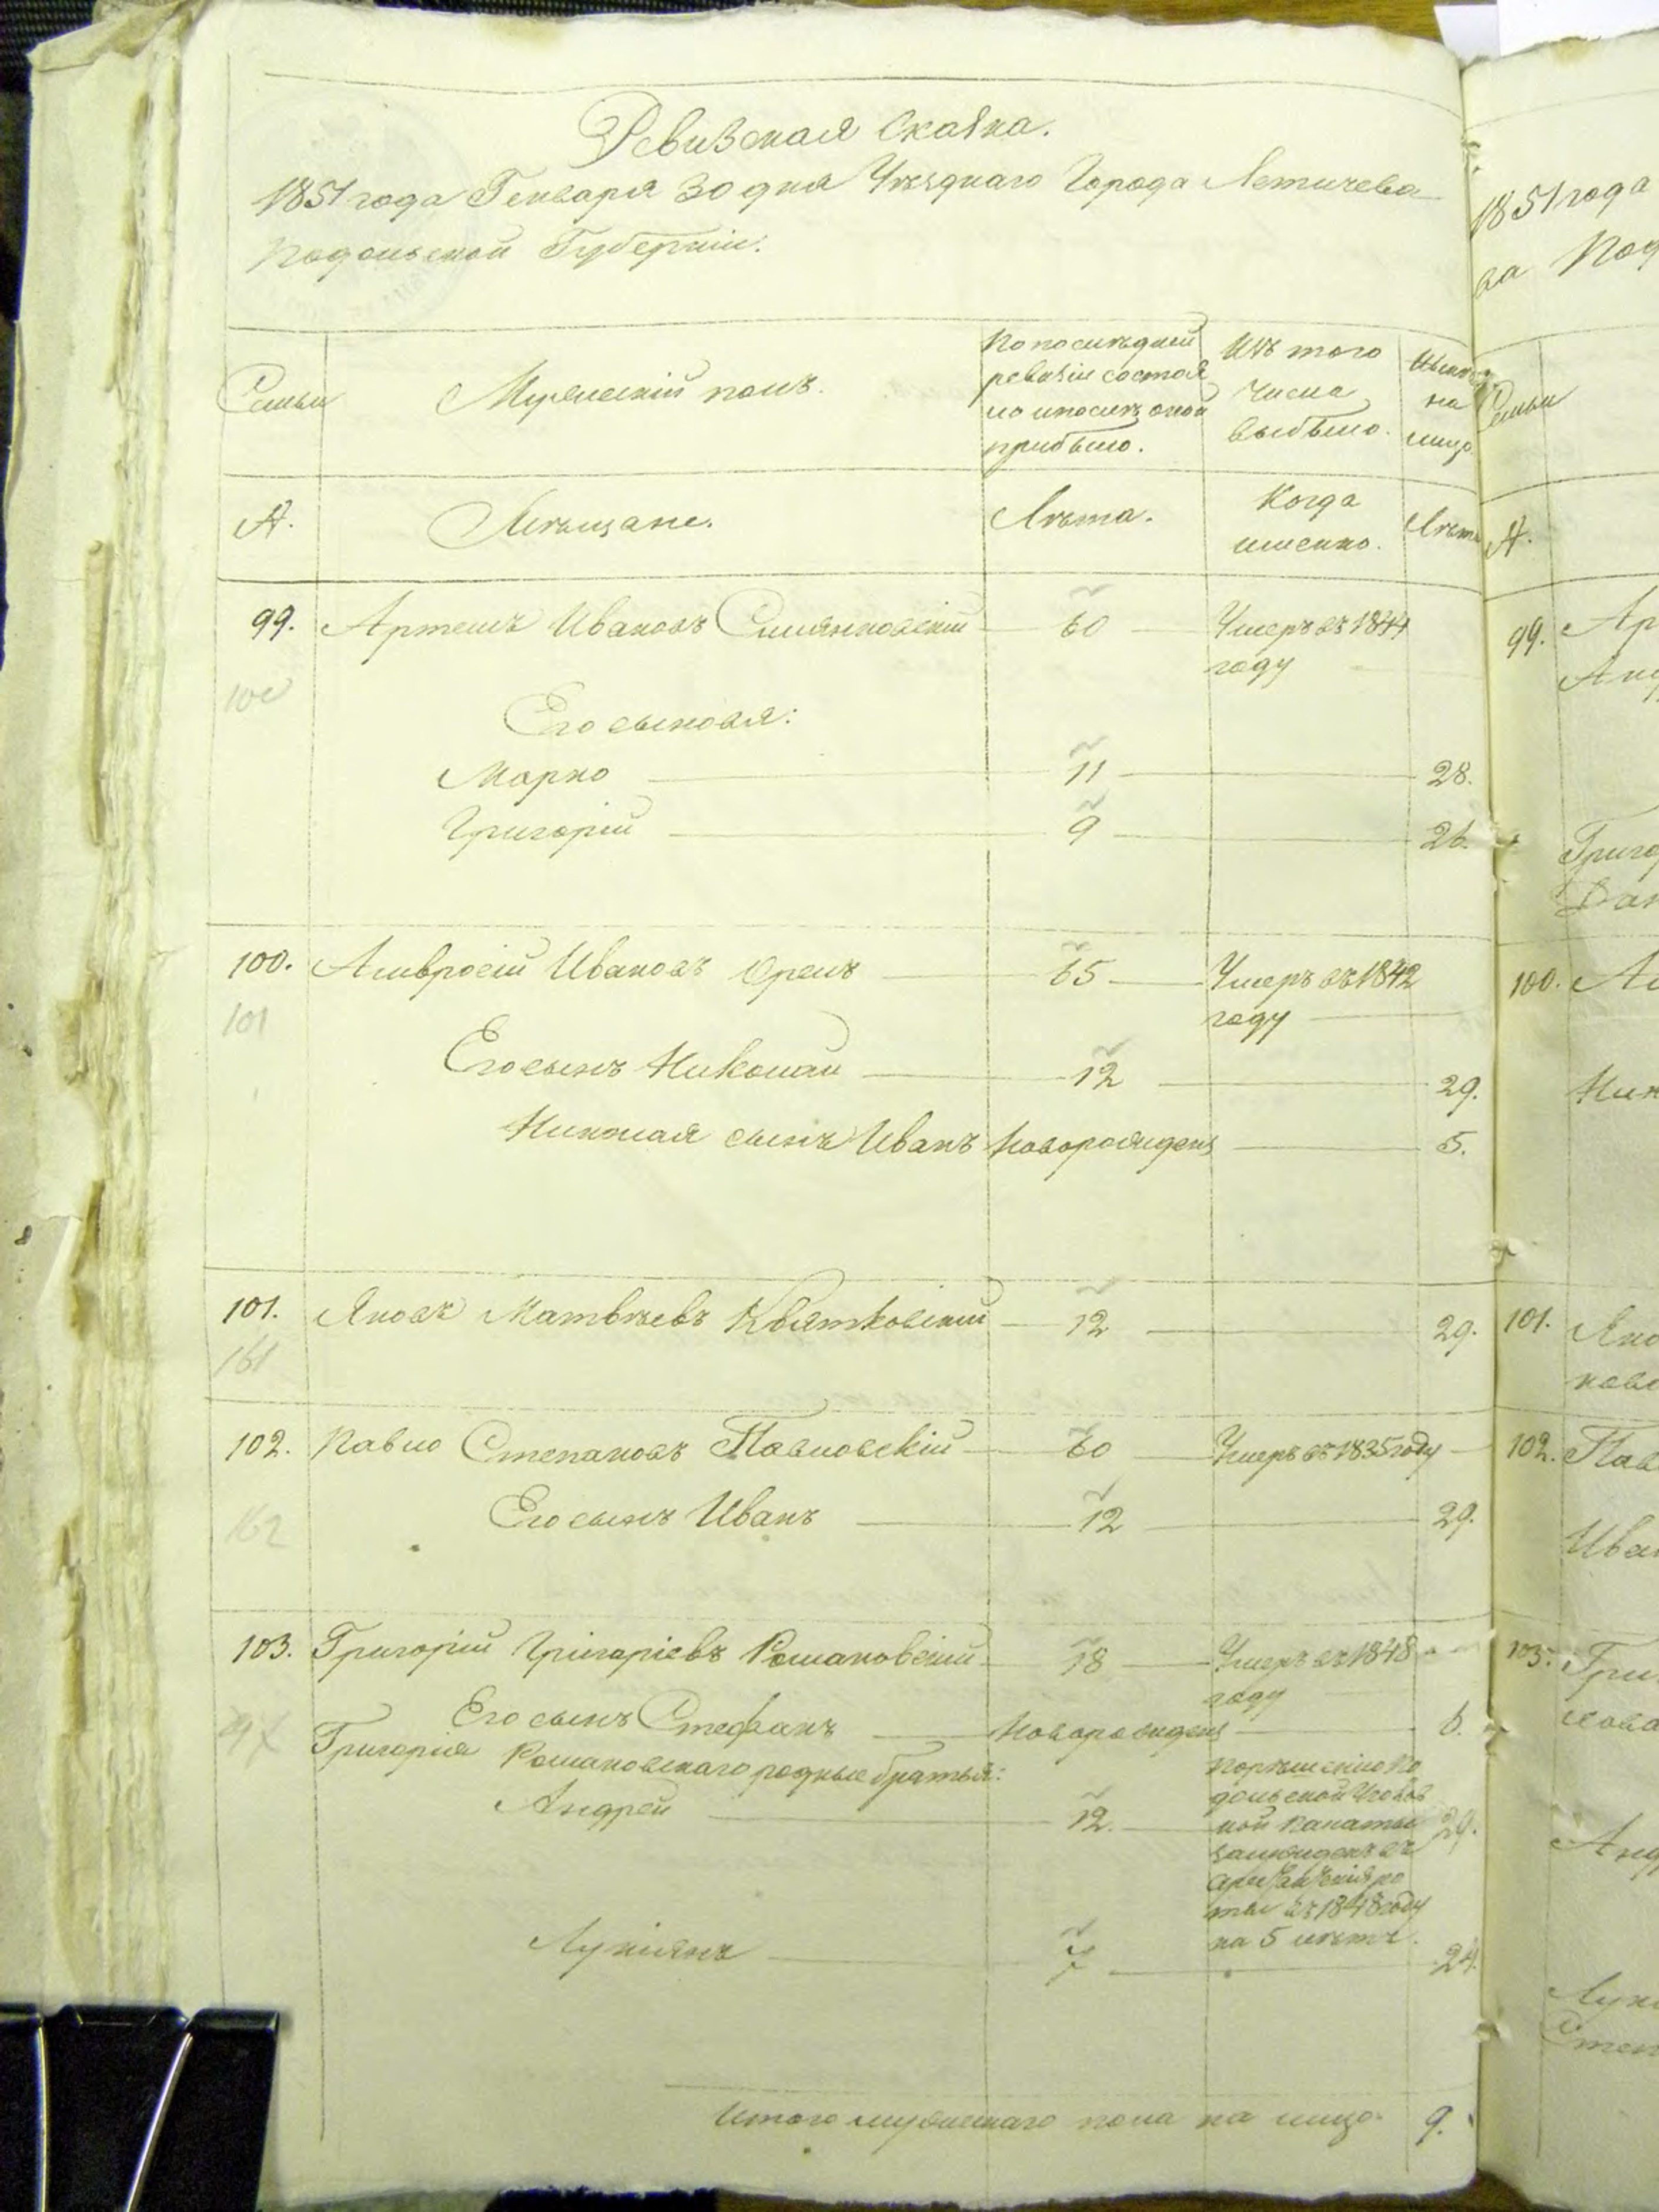 Ревизская Сказка.
1851 года Генваря 30 дня Уѣзднаго Города Летичева
Подольской Губерніи.
Семьи
Мужескій полъ.
По послѣдней
ревизіи состоя
ло и послѣ оной
прибыло.
Изъ того
числа
выбыло.
Нынѣ
на
лицо
А.
Мѣщане.
Лѣта.
Когда
именно.
Лѣта
99. Артемъ Ивановъ 60 Умеръ въ 1844
году
100
Его сыновья:
Марко 11 28.
Григорій 9 26.
100. Амвросій Ивановъ Орелъ 65 Умеръ въ 1842
году
101
Его сынъ Николай 12 29.
Николая сынъ Иванъ новорожденъ 5.
101. Яковъ Матвѣевъ Квятковскій 12 29.
161
102. Павло Степановъ Павловскій 60 Умеръ въ 1835 году
162
Его сынъ Иванъ 12 29.
103. Григорій Григоріевъ Романовскій 18 Умеръ въ 1848
году
Его сынъ Стефанъ новорожденъ 6.
Григорія Романовскаго родные братья:
Андрей 12. 29.
По рѣшенію По
дольской Уголов
ной Палаты
въ
арестанскія ро
ты въ 1848 году
на 5 лѣтъ.
Лукіянъ 7 24.
Итого мужескаго пола на лицо 9.
1851 года
ва Под
Семьи
А.
99. Ар
Анд
Григо
100.
Ник
101. Яко
102. Пав
Иван
103. Гри
Анд
Луки
Степ